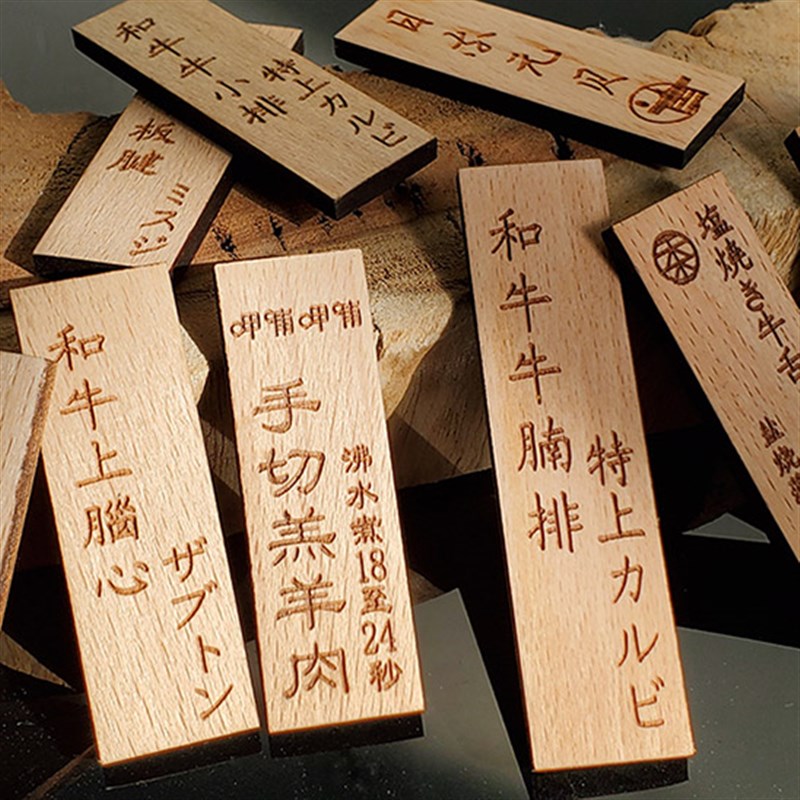 和牛牛小排
特上カルビ
板腱
ミスジ
和牛上腦心
ザブトン
呷哺呷哺
手切羔羊肉
沸水煮18至24秒
和牛牛腩排
特上カルビ
塩焼き牛舌